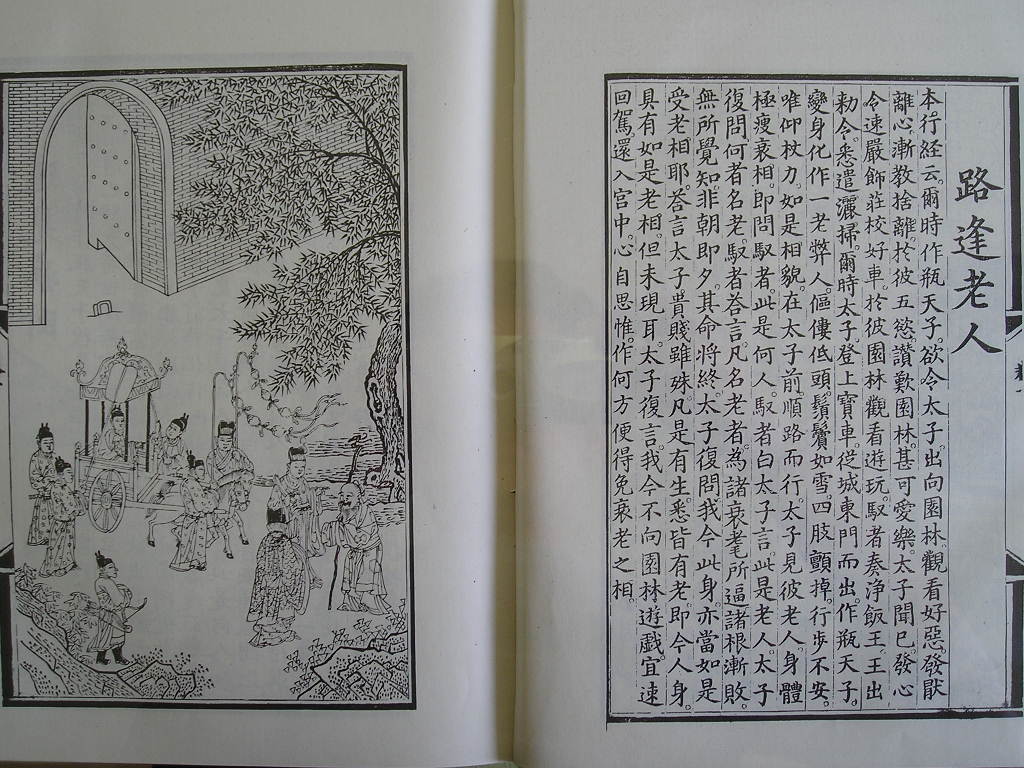 路逢老人
本行経云。爾時作瓶天子。欲令太子。出向園林觀看好惡。發厭
離心。漸教捨離。於彼五慾。讃歎園林。甚可愛樂。太子聞已。發心
令速嚴飾莊校好車。於彼園林觀看遊玩。馭者奏淨飯王。王出
勅令。悉遣灑掃。爾時太子。登上寶車。從城東門而出。作瓶天子。
變身化作一老弊人。傴僂低頭。鬚鬢如雪。四肢顫掉。行步不安。
唯仰杖力。如是相貌。在太子前。順路而行。太子見彼老人。身體
極瘦衰相。即問馭者。此是何人。馭者白太子言。此是老人。太子
復問。何者名老。馭者荅言。凡名老者。為諸衰耄所逼。諸根漸敗。
無所覺知。非朝即夕。其命將終。太子復問。我今此身。亦當如是
受老相耶。荅言。太子。貴賤雖殊。凡是有生。悉皆有老。即今人身。
具有如是老相。但未現耳。太子復言。我今不向園林遊戲。宜速
回駕。還入宮中。心自思惟。作何方便。得免衰老之相。